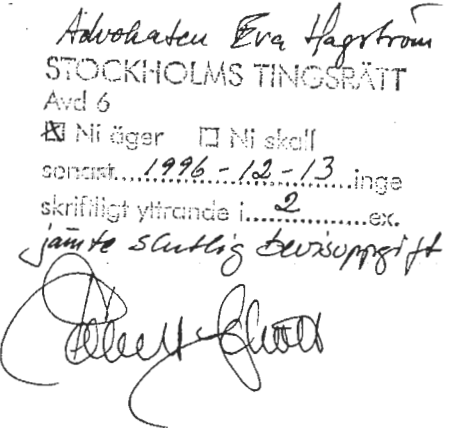 Advokaten Eva Hagström
STOCKHOLMS TINGSRÄTT
Avd 6
☒ Ni äger ☐ Ni skall
senast....1996-12-13...inge
skriftligt yttrande i......2......ex.
jämte slutlig bevisuppgift